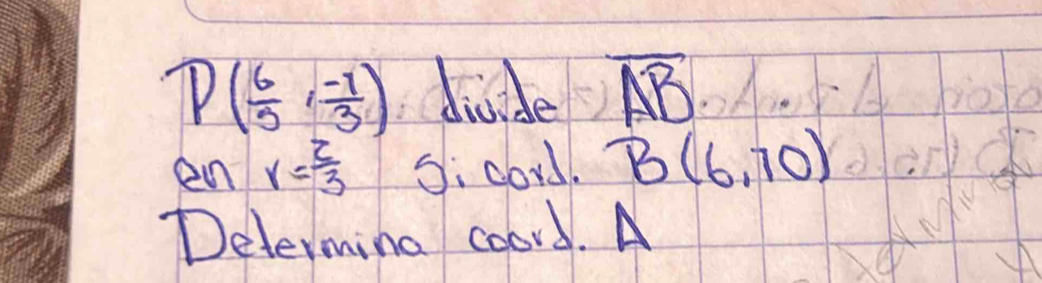 P(6/5, -7/3) divide AB
en r=2/3 Si cord. B(6,10)
Determina coord. A